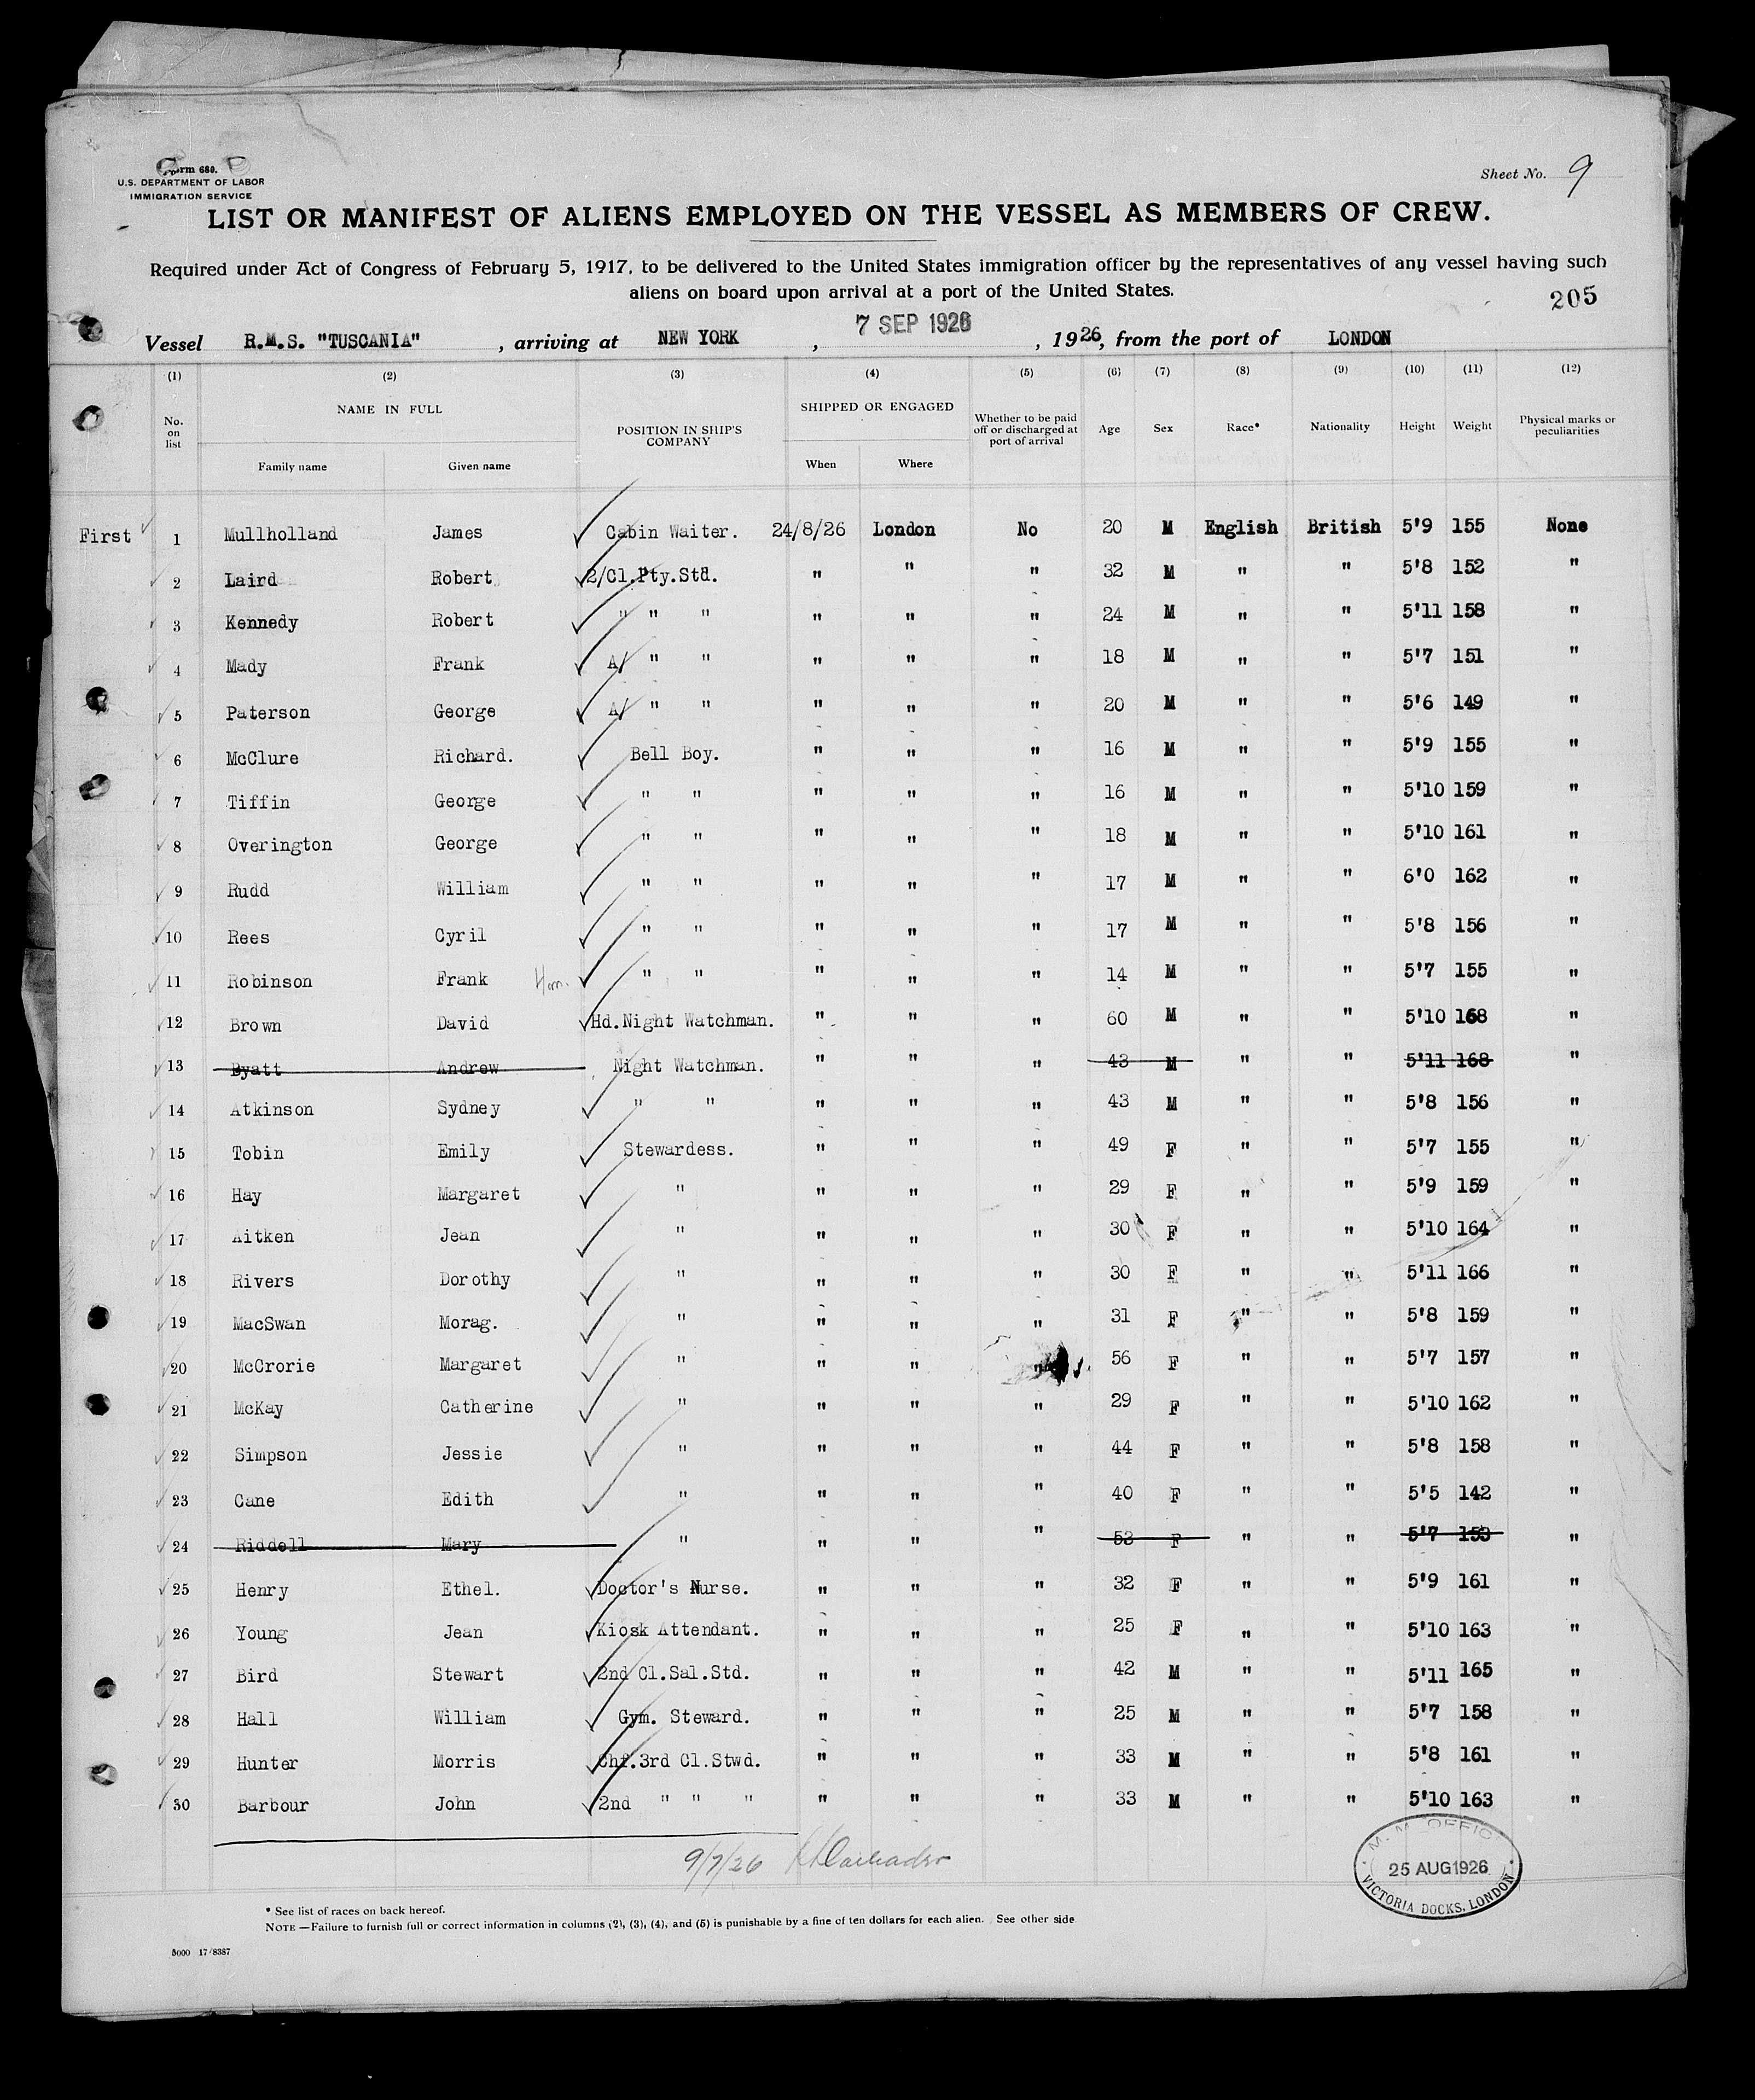 Form 680.
U.S. DEPARTMENT OF LABOR
IMMIGRATION SERVICE
Sheet No. 9
LIST OR MANIFEST OF ALIENS EMPLOYED ON THE VESSEL AS MEMBERS OF CREW.
Required under Act of Congress of February 5, 1917, to be delivered to the United States immigration officer by the representatives of any vessel having such
aliens on board upon arrival at a port of the United States.
205
7 SEP 1926
Vessel R.M.S. "TUSCANIA" , arriving at NEW YORK , , 1926, from the port of LONDON
(1) (2) (3) (4) (5) (6) (7) (8) (9) (10) (11) (12)
No. on list NAME IN FULL POSITION IN SHIP'S COMPANY SHIPPED OR ENGAGED Whether to be paid off or discharged at port of arrival Age Sex Race* Nationality Height Weight Physical marks or peculiarities
Family name Given name When Where
First 1 Mullholland James Cabin Waiter. 24/8/26 London No 20 M English British 5'9 155 None
2 Laird Robert 2/Cl.Pty.Std. " " " 32 M " " 5'8 152 "
3 Kennedy Robert " " " " " " 24 M " " 5'11 158 "
4 Mady Frank A/ " " " " " 18 M " " 5'7 151 "
5 Paterson George A/ " " " " " 20 M " " 5'6 149 "
6 McClure Richard. Bell Boy. " " " 16 M " " 5'9 155 "
7 Tiffin George " " " " " 16 M " " 5'10 159 "
8 Overington George " " " " " 18 M " " 5'10 161 "
9 Rudd William " " " " " 17 M " " 6'0 162 "
10 Rees Cyril " " " " " 17 M " " 5'8 156 "
11 Robinson Frank " " " " " 14 M " " 5'7 155 "
12 Brown David Hd.Night Watchman. " " " 60 M " " 5'10 168 "
13 Byatt Andrew Night Watchman. " " " 43 M " " 5'11 168 "
14 Atkinson Sydney " " " " " 43 M " " 5'8 156 "
15 Tobin Emily Stewardess. " " " 49 F " " 5'7 155 "
16 Hay Margaret " " " " 29 F " " 5'9 159 "
17 Aitken Jean " " " " 30 F " " 5'10 164 "
18 Rivers Dorothy " " " " 30 F " " 5'11 166 "
19 MacSwan Morag. " " " " 31 F " " 5'8 159 "
20 McCrorie Margaret " " " " 56 F " " 5'7 157 "
21 McKay Catherine " " " " 29 F " " 5'10 162 "
22 Simpson Jessie " " " " 44 F " " 5'8 158 "
23 Cane Edith " " " " 40 F " " 5'5 142 "
24 Riddell Mary " " " " 53 F " " 5'7 153 "
25 Henry Ethel. Doctor's Nurse. " " " 32 F " " 5'9 161 "
26 Young Jean Kiosk Attendant. " " " 25 F " " 5'10 163 "
27 Bird Stewart 2nd Cl.Sal.Std. " " " 42 M " " 5'11 165 "
28 Hall William Gym. Steward. " " " 25 M " " 5'7 158 "
29 Hunter Morris Chf.3rd Cl.Stwd. " " " 33 M " " 5'8 161 "
30 Barbour John 2nd " " " " " " 33 M " " 5'10 163 "
9/7/26
M. M. OFFIC
25 AUG 1926
VICTORIA DOCKS, LONDON
* See list of races on back hereof.
NOTE —Failure to furnish full or correct information in columns (2), (3), (4), and (5) is punishable by a fine of ten dollars for each alien. See other side
5000 17/8387